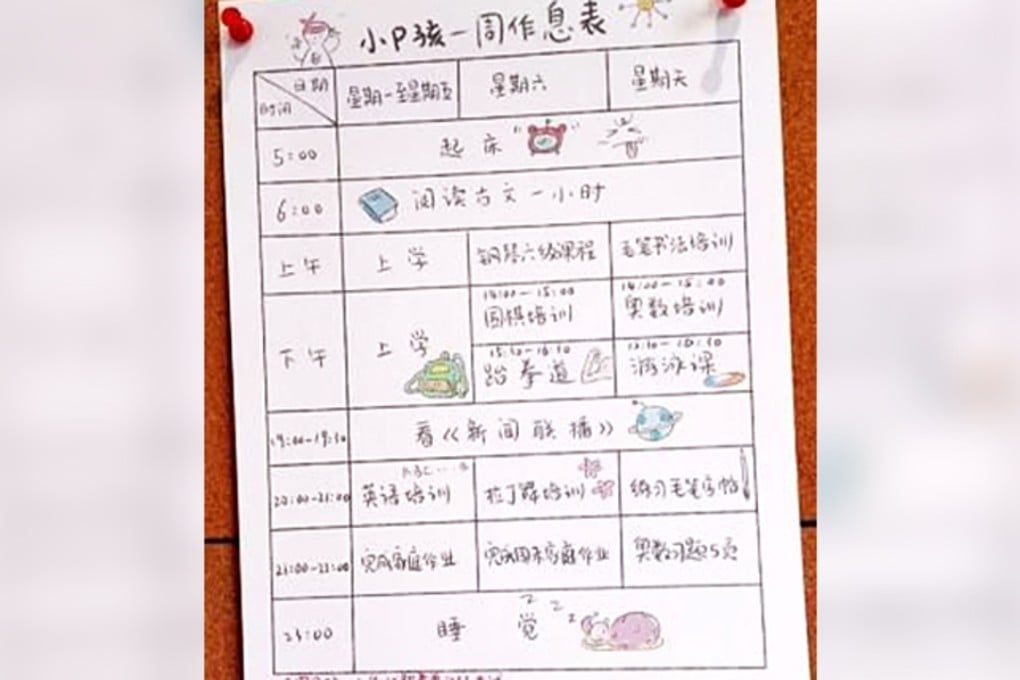 小P孩一周作息表
日期
时间
星期一至星期五 星期六 星期天
5:00 起床
6:00 阅读古文一小时
上午 上学 钢琴六级课程 毛笔书法培训
14:00-15:00 14:00-15:00
围棋培训 奥数培训
下午 上学
15:30-16:30
跆拳道 游泳课
19:00-19:30 看《新闻联播》
ABC...
20:00-21:00 英语培训 拉丁舞培训 练习毛笔字帖
21:00-22:00 完成家庭作业 完成周末家庭作业 奥数习题5页
23:00 睡觉
z z z